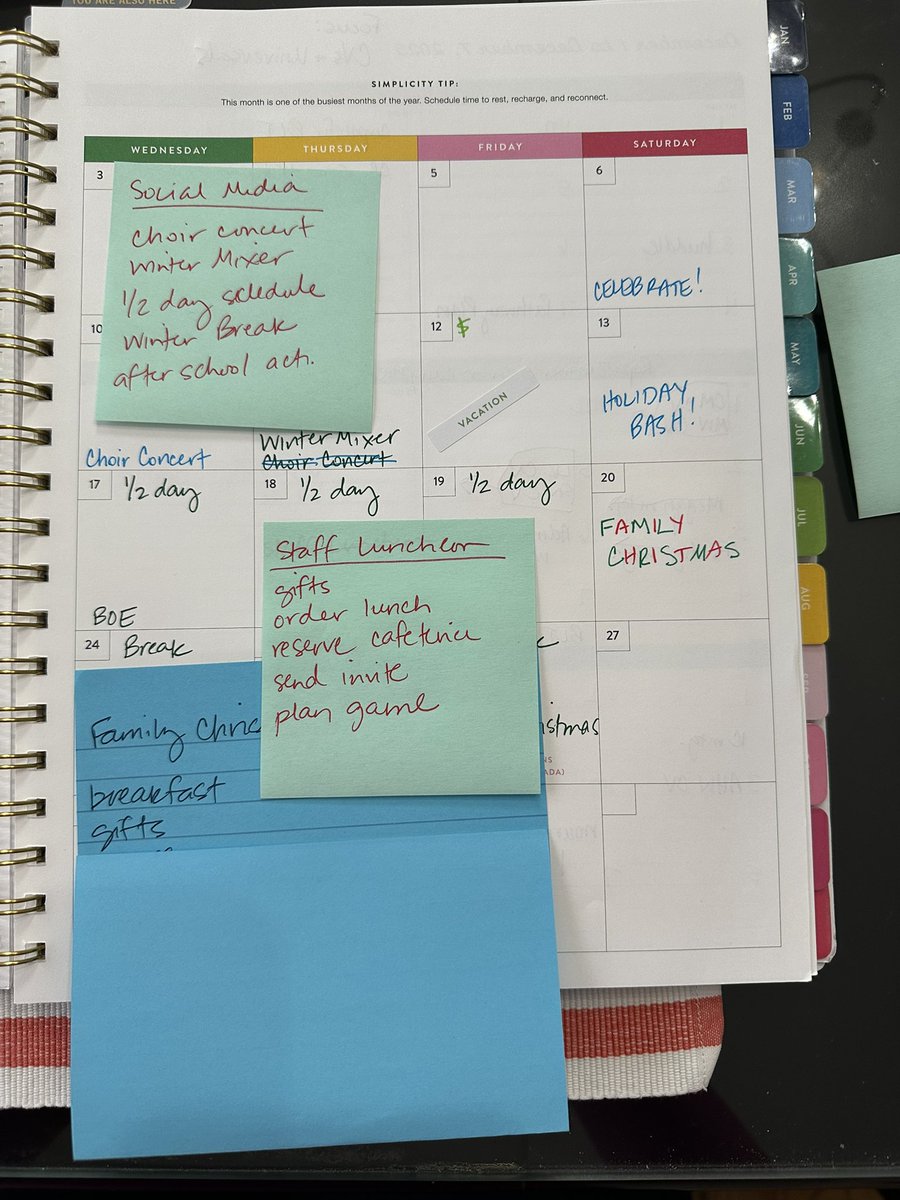 YOU ARE ALSO HERE
SIMPLICITY TIP:
This month is one of the busiest months of the year. Schedule time to rest, recharge, and reconnect.
WEDNESDAY THURSDAY FRIDAY SATURDAY
3 5 6
Social Media
choir concert
Winter Mixer
1/2 day schedule
Winter Break
after school act.
CELEBRATE!
10 12 $ 13
VACATION
HOLIDAY
BASH!
Choir Concert
Winter Mixer
Choir Concert
17 1/2 day 18 1/2 day 19 1/2 day 20
FAMILY
CHRISTMAS
BOE
Staff Luncheon
gifts
order lunch
reserve cafeteria
send invite
plan game
24 Break 27
Family Chris
istmas
breakfast
gifts
JAN
FEB
MAR
APR
MAY
JUN
JUL
AUG
SEP